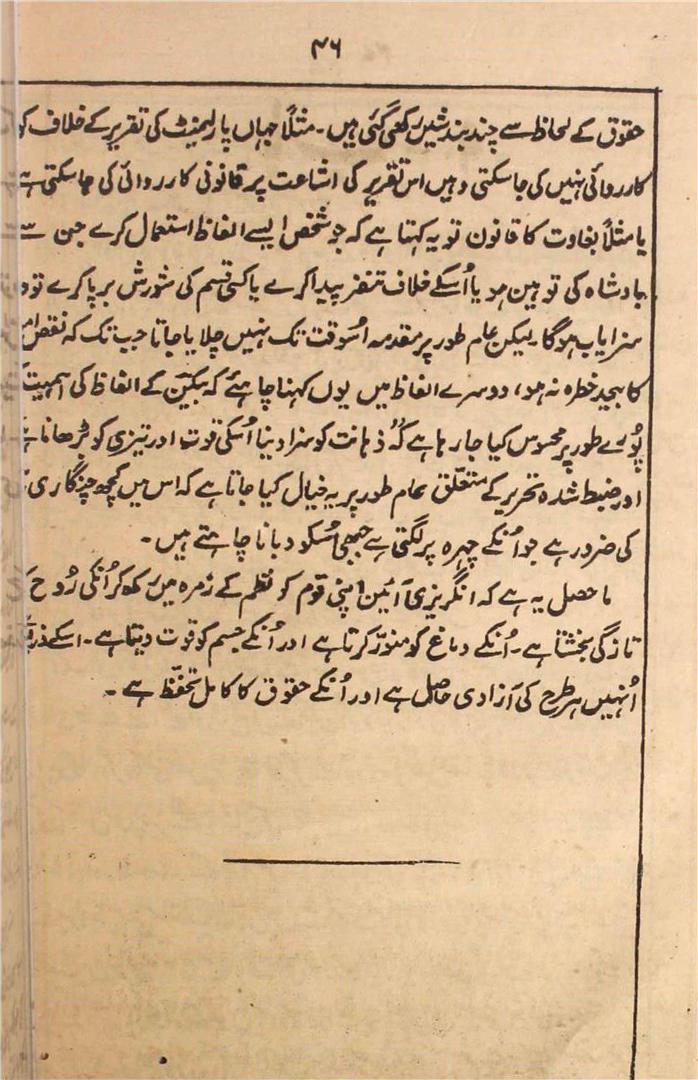 ۴۶
حقوق کے لحاظ سے چند بندشیں رکھی گئی ہیں۔ مثلاً جہاں پارلیمنٹ کی تقریر کے خلاف کو
کارروائی نہیں کی جاسکتی وہیں اس تقریر کی اشاعت پر قانونی کارروائی کی جاسکتی ہے
یا مثلاً بغاوت کا قانون تو یہ کہتا ہے کہ جو شخص ایسے الفاظ استعمال کرے جن سے
بادشاہ کی توہین ہو یا اُسکے خلاف تنفر پیدا کرے یا کسی قسم کی شورش برپا کرے تو
سزایاب ہوگا لیکن عام طور پر مقدمہ اُسوقت تک نہیں چلایا جاتا جب تک کہ نقص
کا بیحد خطرہ نہ ہو، دوسرے الفاظ میں یوں کہنا چاہئے کہ بیکن کے الفاظ کی اہمیت
پورے طور پر محسوس کیا جارہا ہے کہ ُذہانت کو سزا دینا اُسکی قوت اور تیزی کو بڑھانا ہے
اور ضبط شدہ تحریر کے متعلق عام طور پر یہ خیال کیا جاتا ہے کہ اس میں کچھ چنگاری
کی ضرور ہے جو اُنکے چہرہ پر لگتی ہے جبھی اُسکو دبانا چاہتے ہیں۔
ماحصل یہ ہے کہ انگریزی آئین اپنی قوم کو نظم کے زمرہ میں رکھ کر اُنکی رُوح
تازگی بخشتا ہے۔ اُنکے دماغ کو منور کرتا ہے اور اُنکے جسم کو قوت دیتا ہے۔ اسکے
اُنہیں ہر طرح کی آزادی حاصل ہے اور اُنکے حقوق کا کامل تحفظ ہے۔